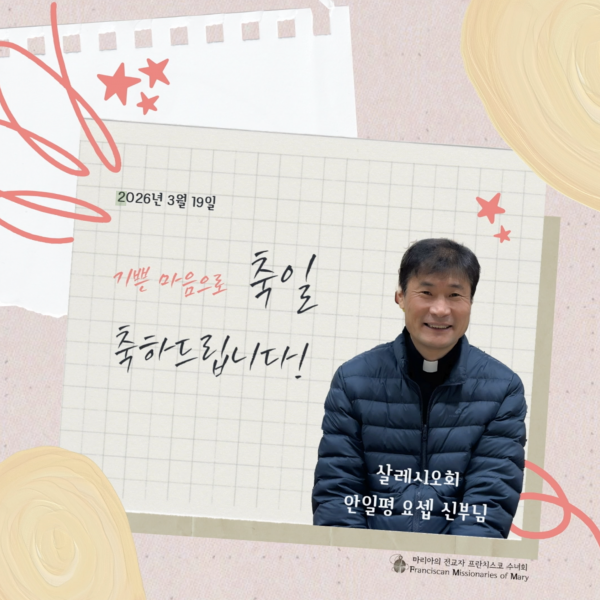 2026년 3월 19일
기쁜 마음으로 축일
축하드립니다!
살레시오회
안일평 요셉 신부님
마리아의 전교자 프란치스코 수녀회
Franciscan Missionaries of Mary